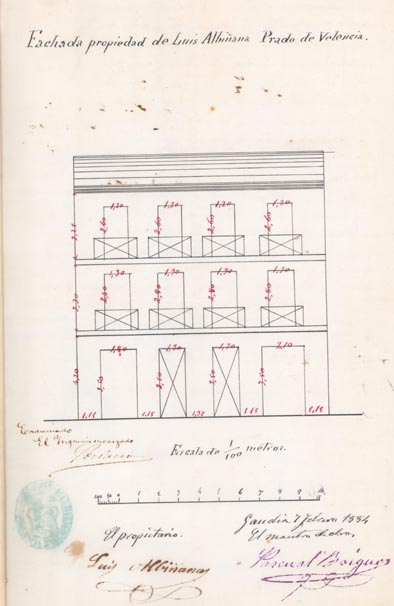 Fachada propiedad de Luis Albiñana Prado de Valencia.
1,20 1,20 1,20 1,20
2,60 2,60 2,60 2,60
3,20
1,30 1,30 1,30 1,30
2,80 2,80 2,80
3,30
1,80 1,30 1,30 2,10
3,50 3,50 3,50 3,50
4,20
1,15 1,15 1,15
Examinado
El
Escala de 1/100 metros.
1 2 3 4 5 6 7 8 9
El propietario.
Gandia 7 Febrero 1884
El maestro de obra,
Luis Albiñana
Pascual Boigues